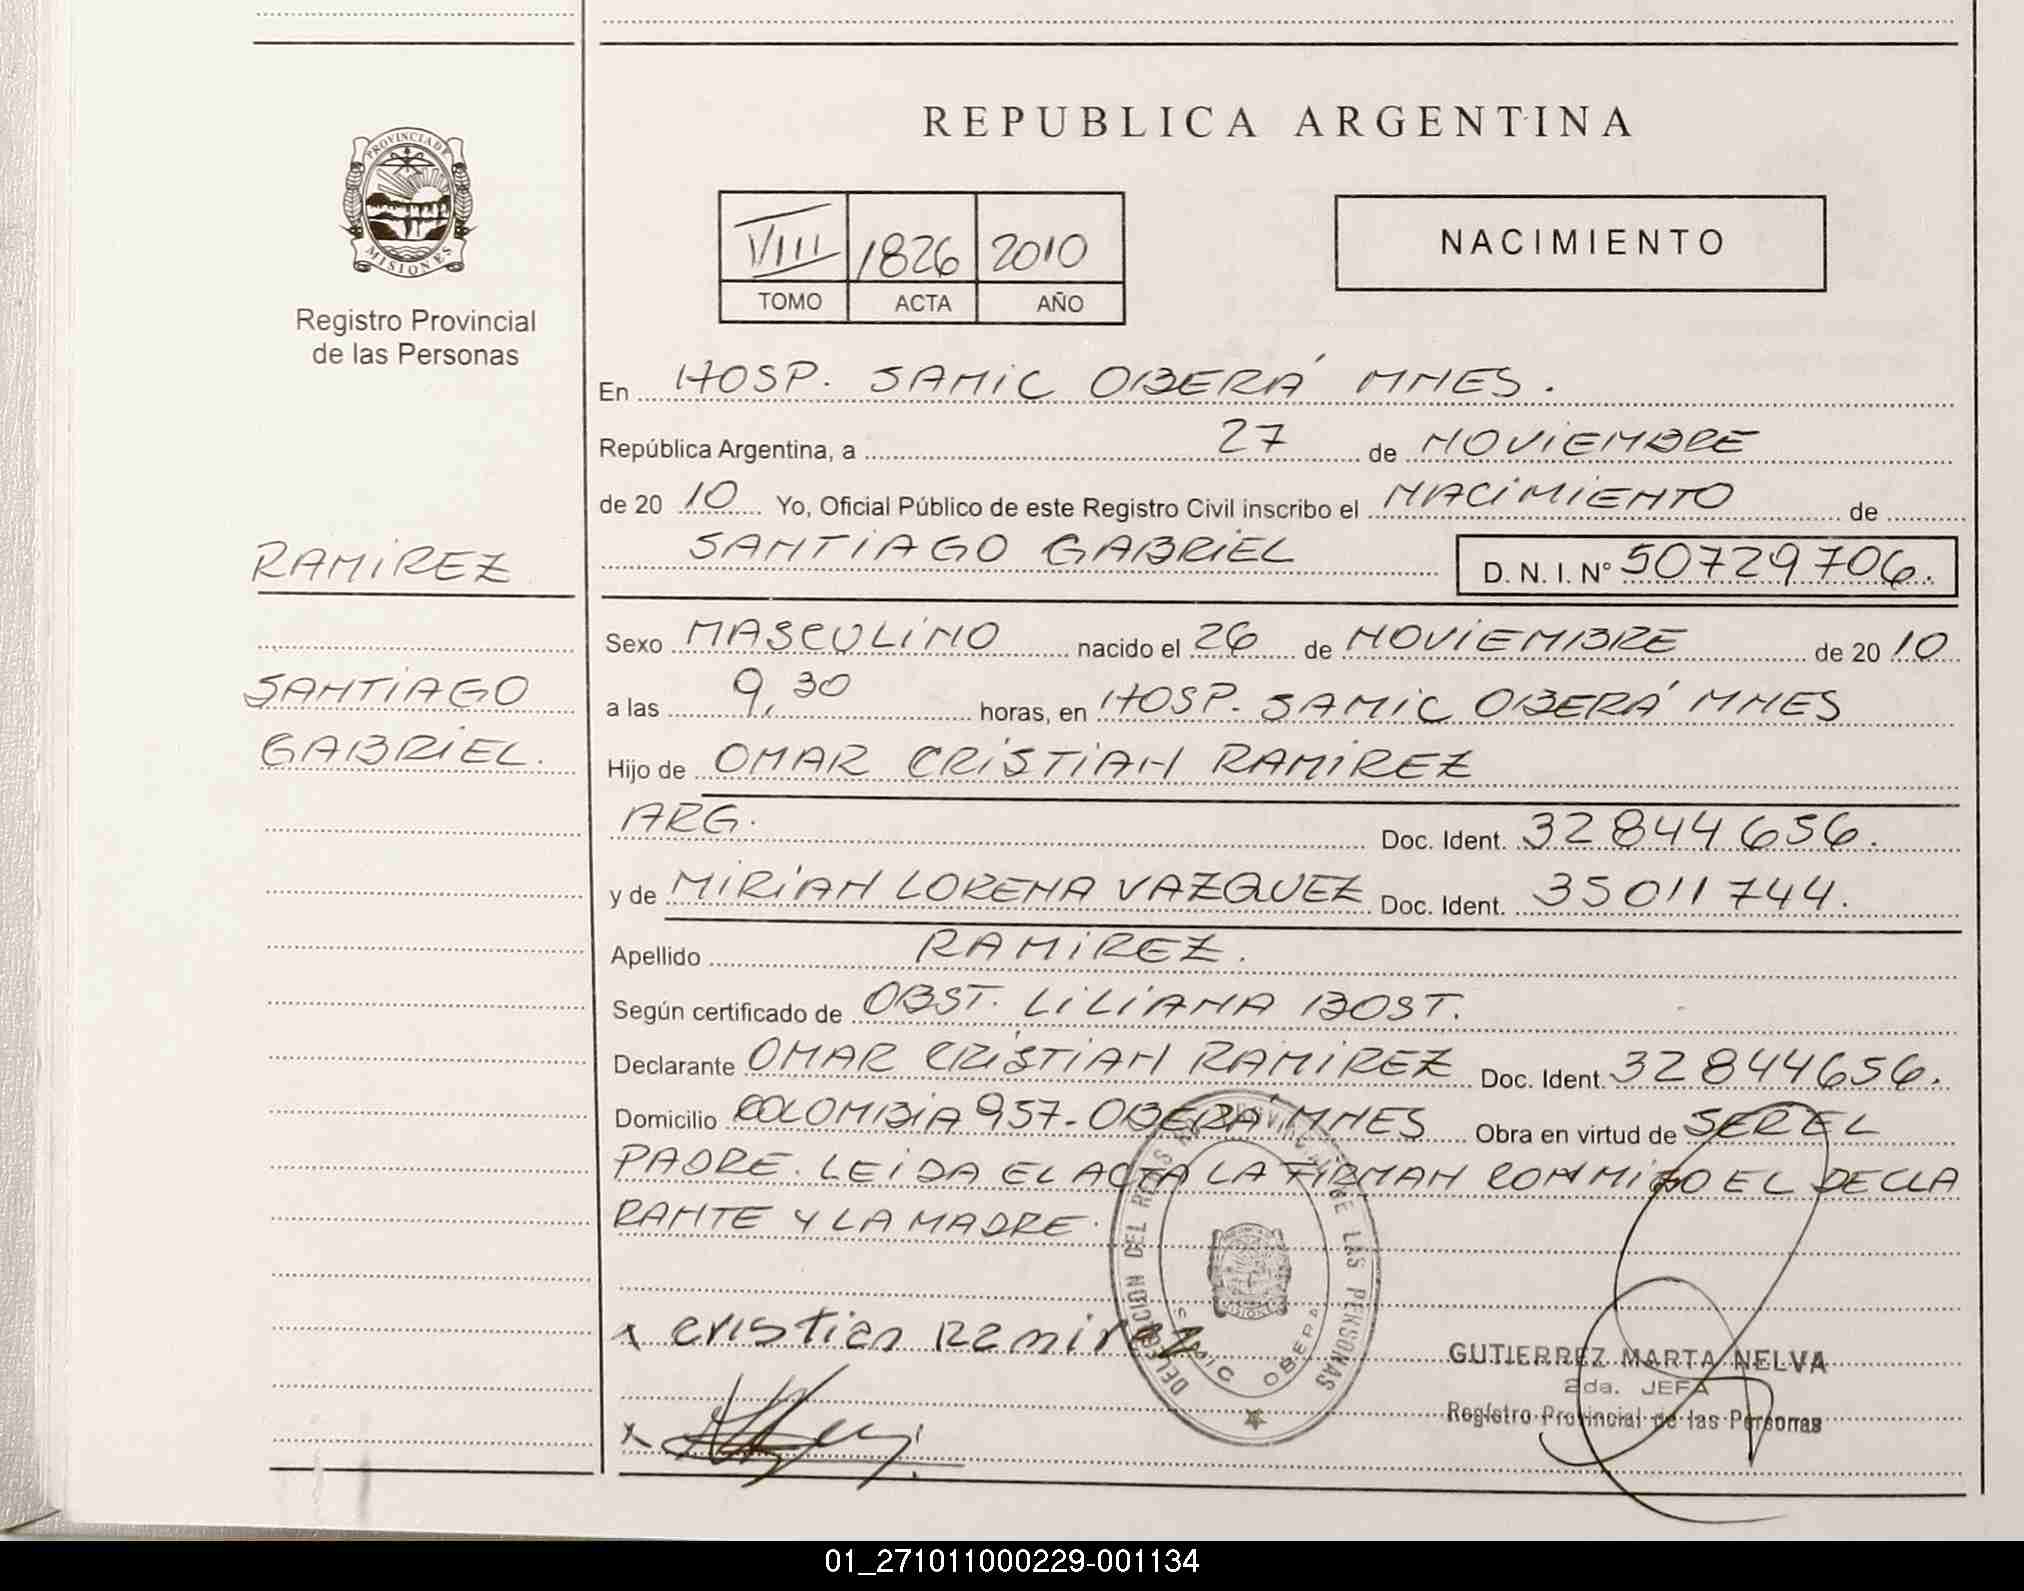 REPUBLICA ARGENTINA
PROVINCIA DE
MISIONES
Registro Provincial
de las Personas
VIII 1826 2010
TOMO ACTA AÑO
NACIMIENTO
En HOSP. SAMIC OBERÁ MNES.
República Argentina, a 27 de NOVIEMBRE
de 20 10 Yo, Oficial Público de este Registro Civil inscribo el NACIMIENTO de
SANTIAGO GABRIEL D. N. I. N° 50729706.
RAMIREZ
SANTIAGO
GABRIEL.
Sexo MASCULINO nacido el 26 de NOVIEMBRE de 20 10
a las 9,30 horas, en HOSP. SAMIC OBERÁ MNES
Hijo de OMAR CRISTIAN RAMIREZ
ARG. Doc. Ident. 32844656.
y de MIRIAN LORENA VAZQUEZ Doc. Ident. 35011744.
Apellido RAMIREZ.
Según certificado de OBST. LILIANA BOST.
Declarante OMAR CRISTIAN RAMIREZ Doc. Ident. 32844656.
Domicilio COLOMBIA 957-OBERÁ MNES Obra en virtud de SER EL
PADRE. LEIDA EL ACTA LA FIRMAN CONMIGO EL DECLA
RANTE Y LA MADRE.
x cristian Ramirez
x
DELEGACION DEL REGISTRO PROVINCIAL DE LAS PERSONAS
SAMIC OBERA
MISIONES
GUTIERREZ MARTA NELVA
2da. JEFA
Registro Provincial de las Personas
01_271011000229-001134